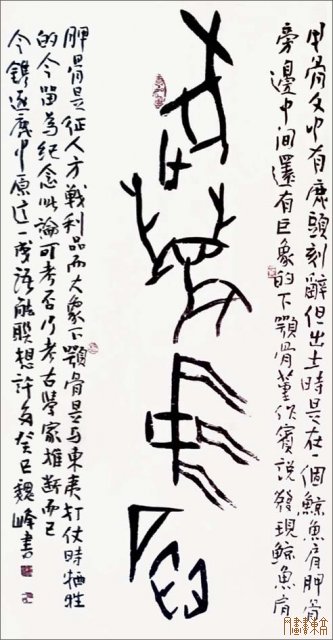 甲骨文中有鹿頭刻辭但出土時是在一個鯨魚肩胛骨
旁邊中間還有巨象的下顎骨董作賓說發現鯨魚肩
胛骨是征人方戰利品而大象下顎骨是与東夷打仗時牺牲
的今留為紀念此論可考否乃考古學家雄斷而已
今鐫逐鹿中原这一成語能聯想許多癸巳魏峰書